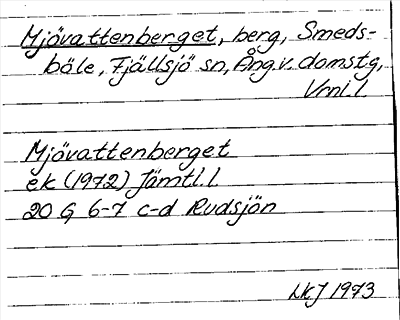 Mjövattenberget, berg, Smeds-
böle, Fjällsjö sn, Ång.v. domstg,
Vrnl l.
Mjövattenberget
ek (1972) Jämtl. l
20 G 6-7 c-d Rudsjön
LKJ 1973